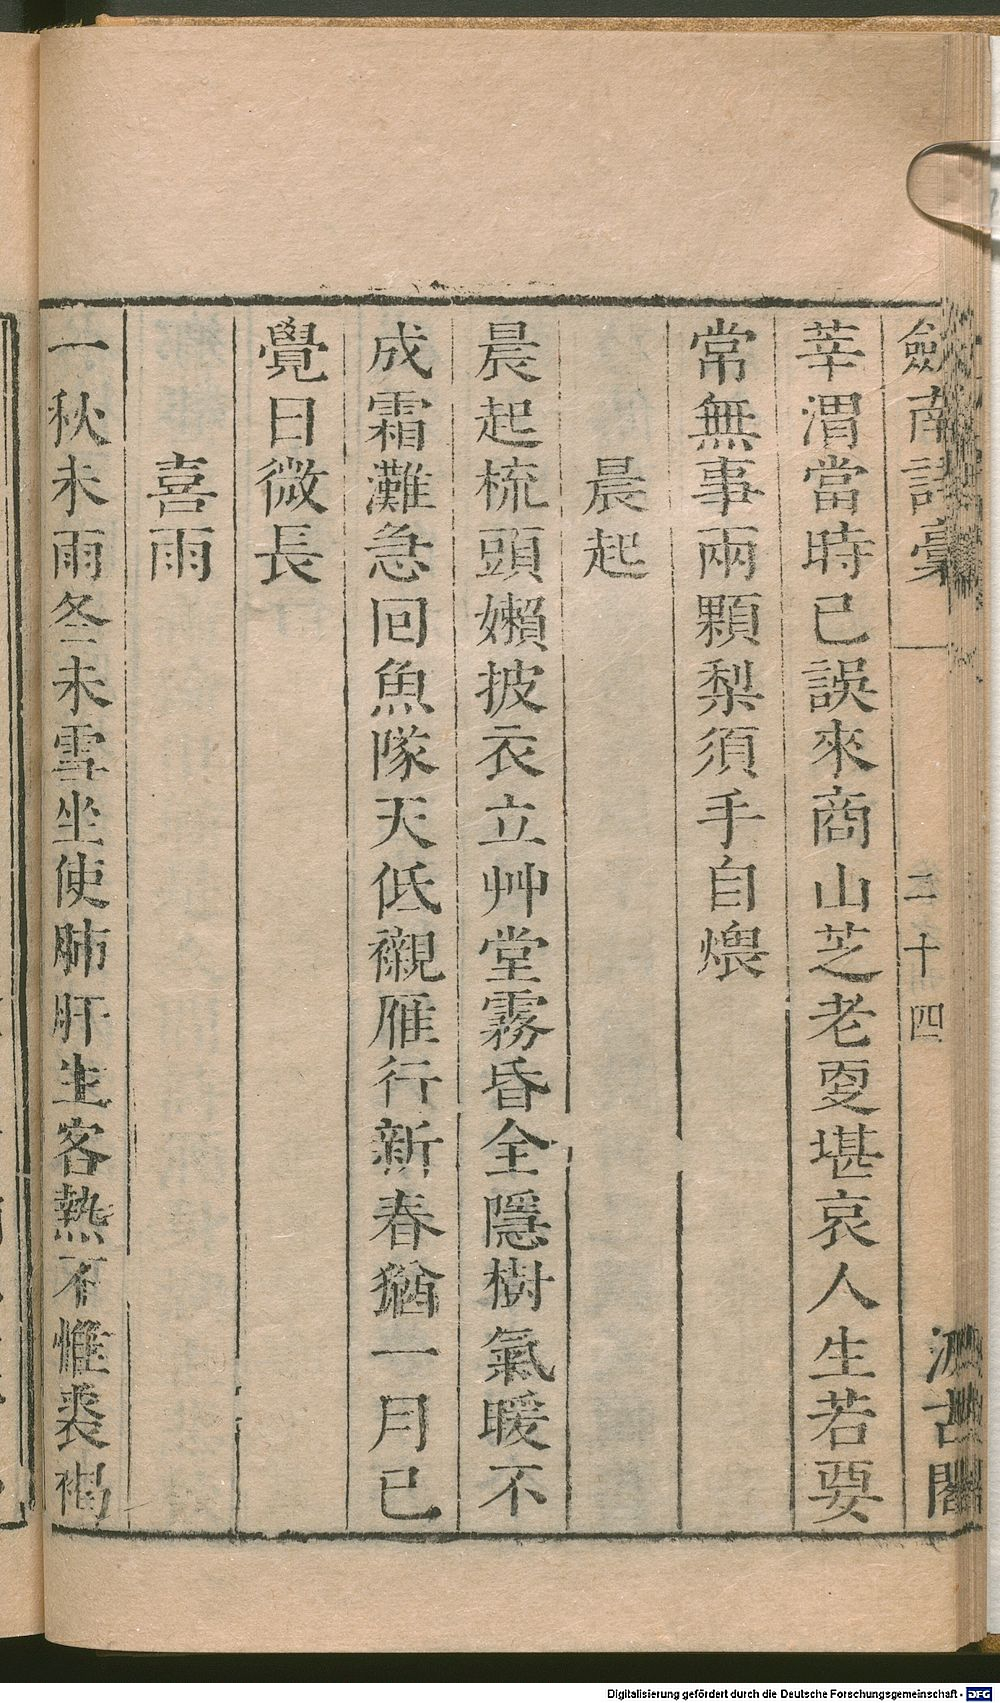 劍南詩稾 二十四 汲古閣
莘渭當時已誤來商山芝老更堪哀人生若要
常無事兩顆梨須手自煨
晨起
晨起梳頭嬾披衣立艸堂霧昏全隱樹氣暖不
成霜灘急回魚隊天低襯雁行新春猶一月已
覺日微長
喜雨
一秋未雨冬未雪坐使肺肝生客熱不惟裘褐
Digitalisierung gefördert durch die Deutsche Forschungsgemeinschaft - DFG